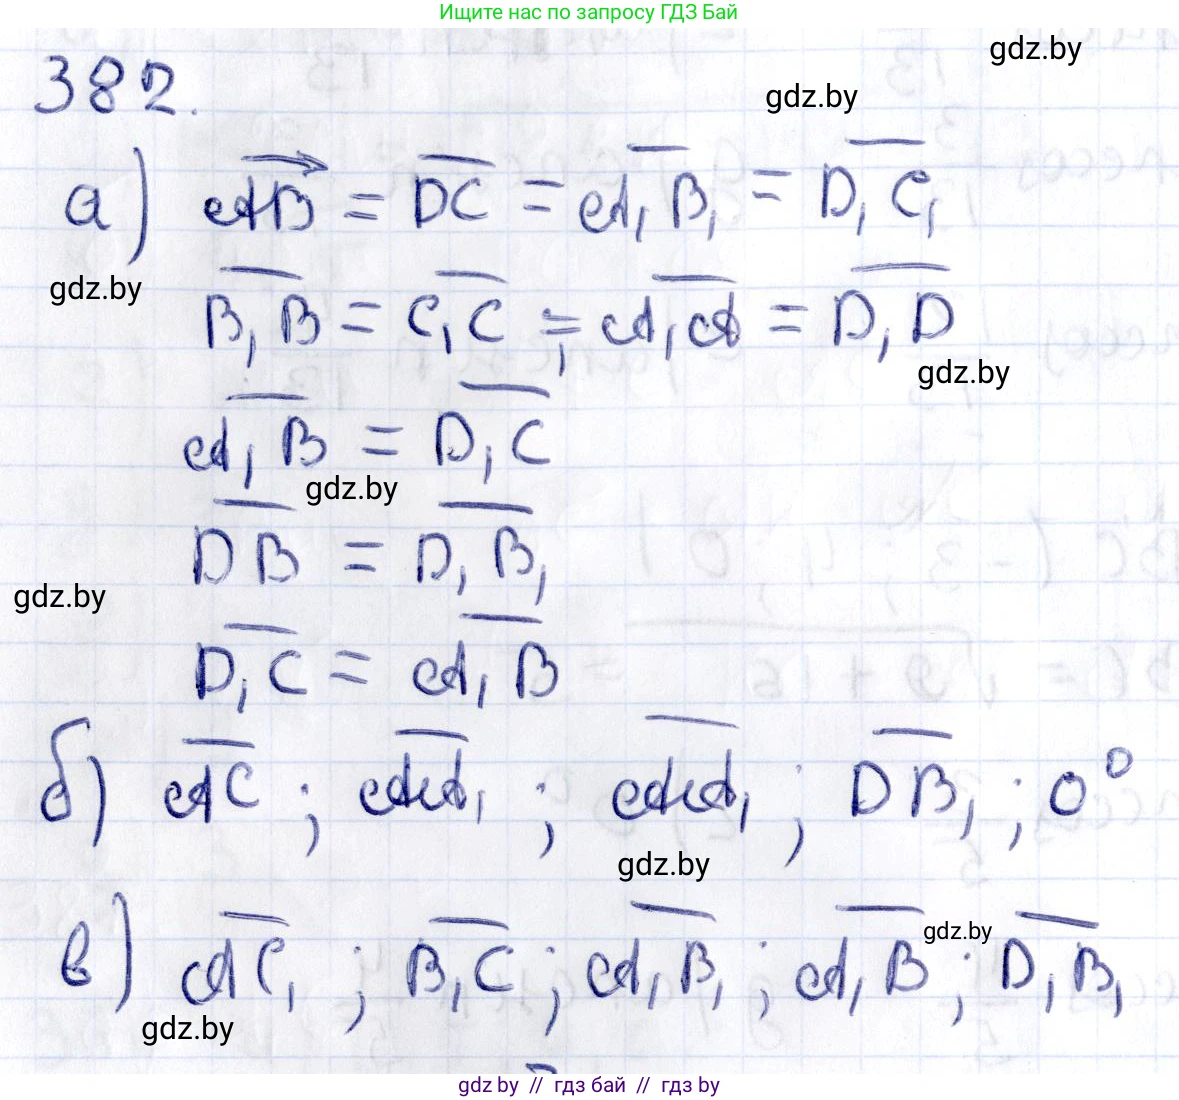 Ищите нас по запросу ГДЗ Бай
gdz.by
382.
gdz.by
а) AB = DC = A₁B₁ = D₁C₁
gdz.by
B₁B = C₁C = A₁A = D₁D
gdz.by
A₁B = D₁C
gdz.by
DB = D₁B₁
gdz.by
D₁C = A₁B
б) AC ; AA₁ ; AA₁ ; DB₁ ; 0⁰
gdz.by
в) AC₁ ; B₁C ; A₁B₁ ; A₁B ; D₁B₁
gdz.by
gdz.by
gdz by // гдз бай // gdz by